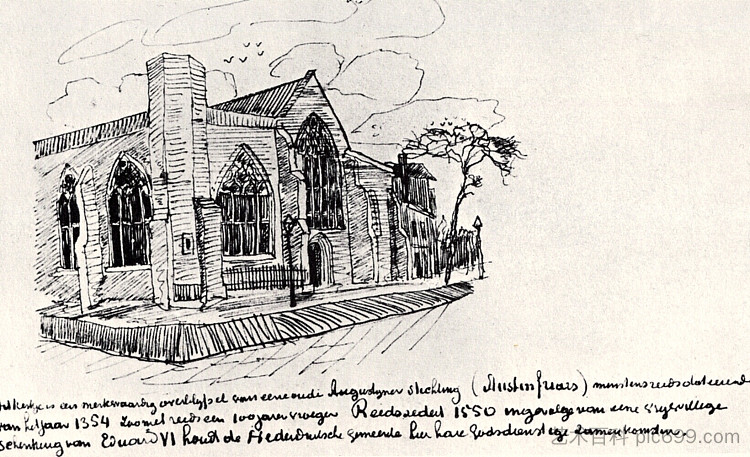 Dit kerkje is een merkwaardig overblijfsel van eene oude Augustijner stichting (Austinfriars) minstens reeds dateerende
van het jaar 1354 zoo niet reeds een 100 jaren vroeger Reeds sedert 1550 ingevolge van eene
Schenking van Eduard VI houdt de Nederduitsche gemeente hier hare Godsdienstige Zamenkomsten
艺术百科 pic699.com